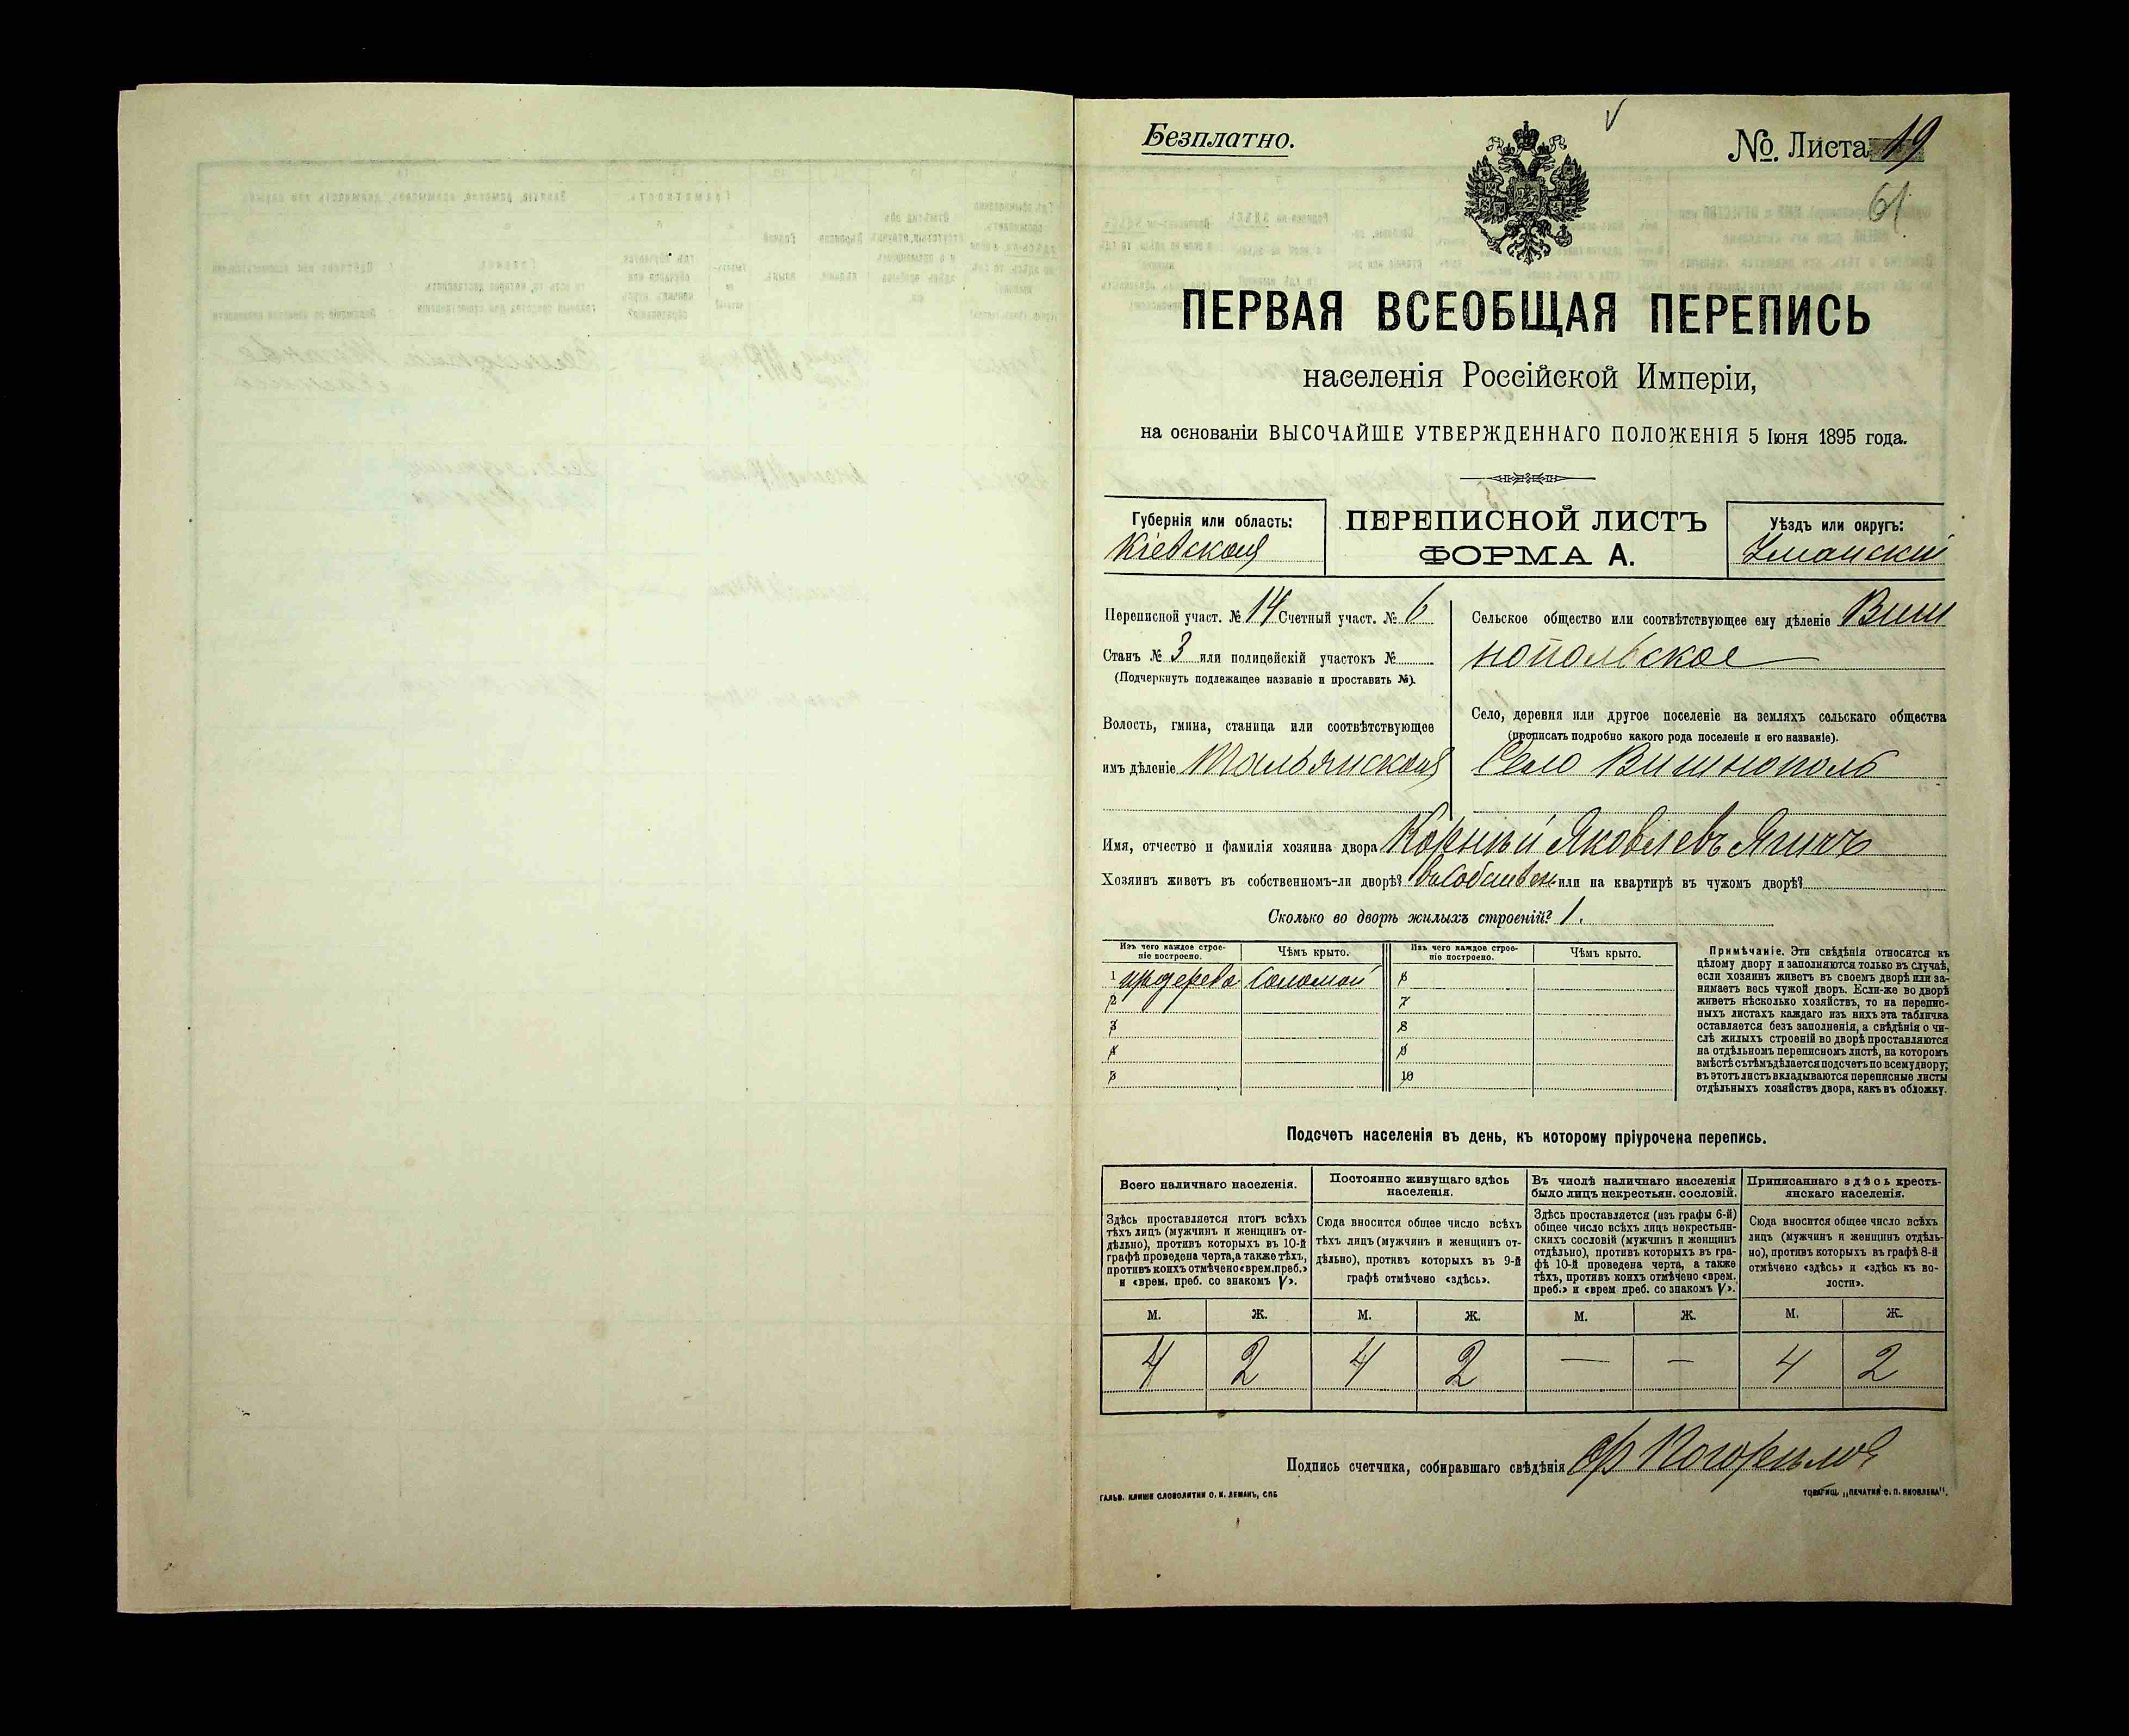 Безплатно.
№. Листа 19
61
ПЕРВАЯ ВСЕОБЩАЯ ПЕРЕПИСЬ
населенія Россійской Имперіи,
на основаніи ВЫСОЧАЙШЕ УТВЕРЖДЕННАГО ПОЛОЖЕНІЯ 5 Іюня 1895 года.
Губернія или область:
Кіевская
ПЕРЕПИСНОЙ ЛИСТЪ
ФОРМА А.
Уѣздъ или округъ:
Уманскій
Переписной участ. № 14 Счетный участ. № 6
Станъ № 3 или полицейскій участокъ №
(Подчеркнуть подлежащее названіе и проставить №).
Волость, гмина, станица или соотвѣтствующее
имъ дѣленіе Тальянская
Сельское общество или соотвѣтствующее ему дѣленіе Виш
нопольское
Село, деревня или другое поселеніе на земляхъ сельскаго общества
(прописать подробно какого рода поселеніе и его названіе).
Село Вишнополь
Имя, отчество и фамилія хозяина двора Корній Яковлевъ
Хозяинъ живетъ въ собственномъ-ли дворѣ? въ собствен. или на квартирѣ въ чужомъ дворѣ?
Сколько во дворѣ жилыхъ строеній? 1.
Изъ чего каждое строе-
ніе построено.
Чѣмъ крыто.
Изъ чего каждое строе-
ніе построено.
Чѣмъ крыто.
1 изъ дерева соломой 6
2 7
3 8
4 9
5 10
Примѣчаніе. Эти свѣдѣнія относятся къ
цѣлому двору и заполняются только въ случаѣ,
если хозяинъ живетъ въ своемъ дворѣ или за-
нимаетъ весь чужой дворъ. Если-же во дворѣ
живетъ нѣсколько хозяйствъ, то на перепис-
ныхъ листахъ каждаго изъ нихъ эта табличка
оставляется безъ заполненія, а свѣдѣнія о чи-
слѣ жилыхъ строеній во дворѣ проставляются
на отдѣльномъ переписномъ листѣ, на которомъ
вмѣстѣ съ тѣмъ дѣлается подсчетъ по всему двору;
въ этотъ листъ вкладываются переписные листы
отдѣльныхъ хозяйствъ двора, какъ въ обложку.
Подсчетъ населенія въ день, къ которому пріурочена перепись.
Всего наличнаго населенія.
Здѣсь проставляется итогъ всѣхъ
тѣхъ лицъ (мужчинъ и женщинъ от-
дѣльно), противъ которыхъ въ 10-й
графѣ проведена черта, а также тѣхъ,
противъ коихъ отмѣчено «врем. преб.»
и «врем. преб. со знакомъ V».
Постоянно живущаго здѣсь
населенія.
Сюда вносится общее число всѣхъ
тѣхъ лицъ (мужчинъ и женщинъ от-
дѣльно), противъ которыхъ въ 9-й
графѣ отмѣчено «здѣсь».
Въ числѣ наличнаго населенія
было лицъ некрестьян. сословій.
Здѣсь проставляется (изъ графы 6-й)
общее число всѣхъ лицъ некрестьян-
скихъ сословій (мужчинъ и женщинъ
отдѣльно), противъ которыхъ въ гра-
фѣ 10-й проведена черта, а также
тѣхъ, противъ коихъ отмѣчено «врем.
преб.» и «врем преб. со знакомъ V».
Приписаннаго здѣсь кресть-
янскаго населенія.
Сюда вносится общее число всѣхъ
лицъ (мужчинъ и женщинъ отдѣль-
но), противъ которыхъ въ графѣ 8-й
отмѣчено «здѣсь» и «здѣсь къ во-
лости».
М. Ж. М. Ж. М. Ж. М. Ж.
4 2 4 2 — — 4 2
Подпись счетчика, собиравшаго свѣдѣнія
ГАЛЬВ. КЛИШЕ СЛОВОЛИТНИ О. И. ЛЕМАНЪ, СПБ
ТОВАРИЩ. „ПЕЧАТНЯ С. П. ЯКОВЛЕВА".